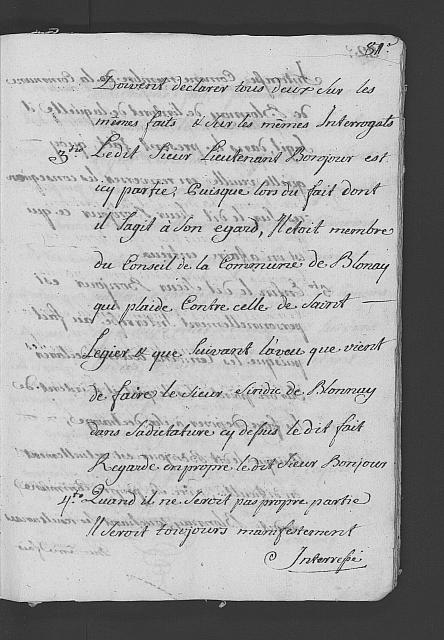 81.
Doivent déclarer tous deux sur les
mêmes faits & sur les mêmes Interrogats
3.no Ledit Sieur Lieutenant Bonjour est
icy partie, Puisque lors du fait dont
il s'agit à son egard, Il étoit membre
du Conseil de la Commune de Blonay
qui plaide Contre celle de Saint
Legier & que Suivant l'aveu que vient
de faire le Sieur Sindic de Blonnay
dans sa dictature cy dessus le dit fait
Regarde en propre le dit Sieur Bonjour
4.to Quand il ne Seroit pas propre partie
Il Seroit toujours manifestement
Interressé